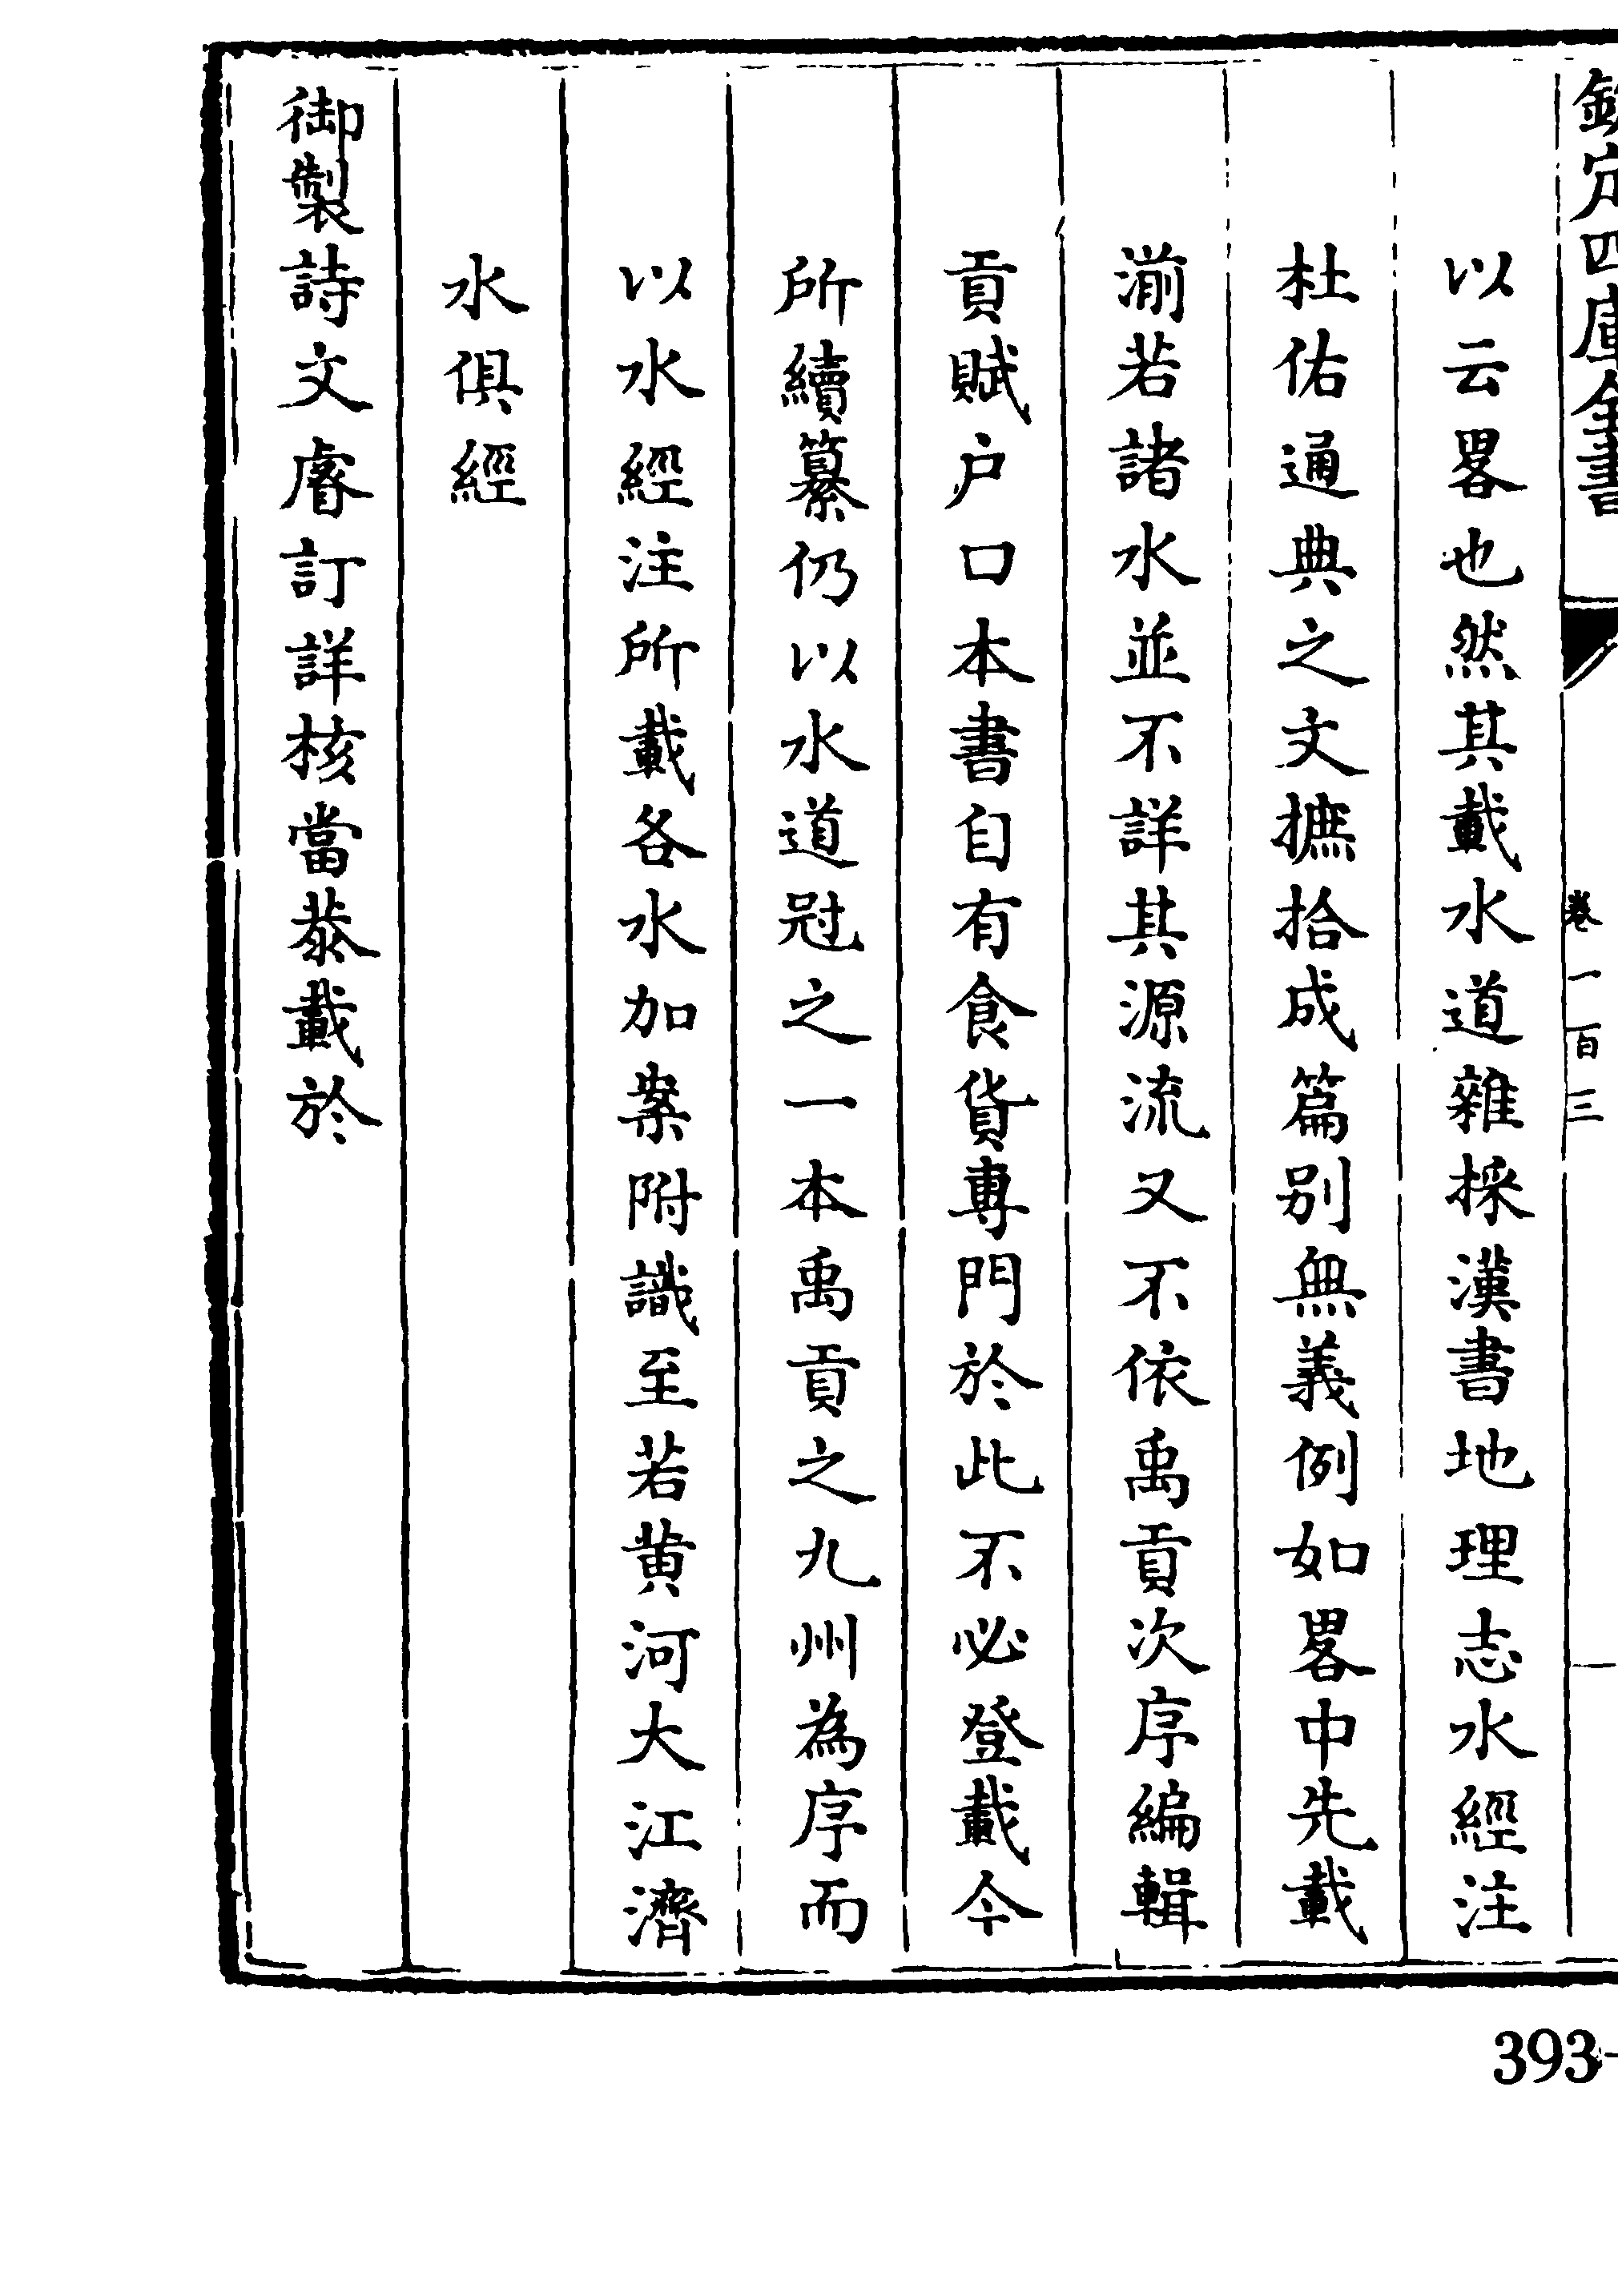 欽定四庫全書 卷一百三 一
以云畧也然其載水道雜採漢書地理志水經注
杜佑通典之文摭拾成篇别無義例如畧中先載
湔若諸水並不詳其源流又不依禹貢次序編輯
貢賦户口本書自有食貨專門於此不必登載今
所續纂仍以水道冠之一本禹貢之九州為序而
以水經注所載各水加案附識至若黄河大江濟
水俱經
御製詩文睿訂詳核當恭載於
393-